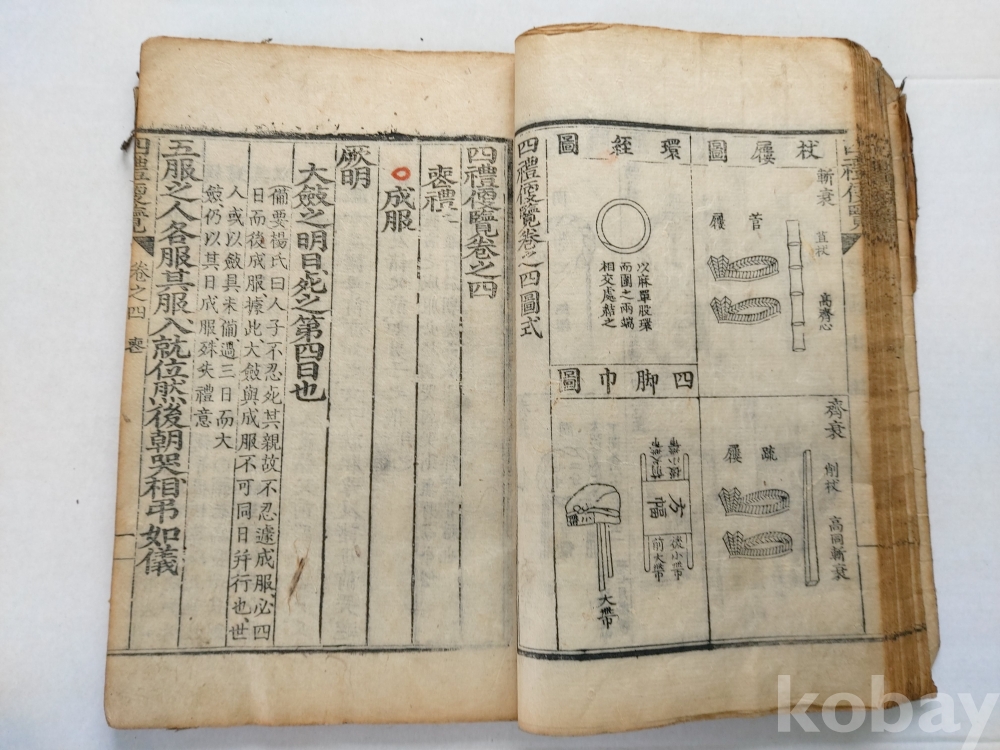 四禮便覽
杖屨圖
斬衰
苴杖
高齊心
菅屨
齊衰
削杖
高同斬衰
疏屨
環絰圖
以麻單股環
而圍之兩端
相交處結之
四脚巾圖
後小帶
前大帶
方幅
後小帶
前大帶
大帶
四禮便覽卷之四圖式
四禮便覽卷之四
喪禮
成服
厥明
大斂之明日死之第四日也
備要楊氏曰人子不忍死其親故不忍遽成服必四
日而後成服據此大斂與成服不可同日并行也世
人或以斂具未備過三日而大
斂仍以其日成服殊失禮意
五服之人各服其服入就位然後朝哭相弔如儀
四禮便覽
卷之四
喪
kobay